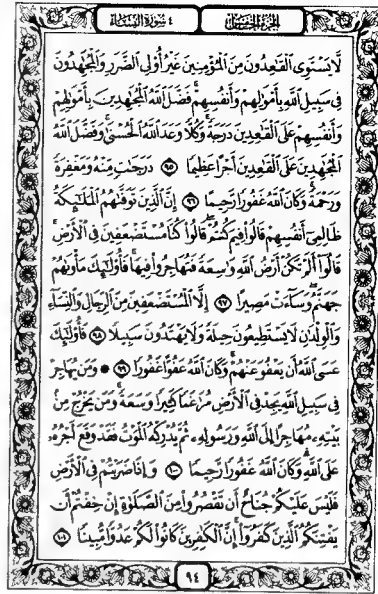 الجزء الخامس
٤ سورة النساء
لَّا يَسْتَوِى ٱلْقَٰعِدُونَ مِنَ ٱلْمُؤْمِنِينَ غَيْرُ أُو۟لِى ٱلضَّرَرِ وَٱلْمُجَٰهِدُونَ
فِى سَبِيلِ ٱللَّهِ بِأَمْوَٰلِهِمْ وَأَنفُسِهِمْ ۚ فَضَّلَ ٱللَّهُ ٱلْمُجَٰهِدِينَ بِأَمْوَٰلِهِمْ
وَأَنفُسِهِمْ عَلَى ٱلْقَٰعِدِينَ دَرَجَةً ۚ وَكُلًّا وَعَدَ ٱللَّهُ ٱلْحُسْنَىٰ ۚ وَفَضَّلَ ٱللَّهُ
ٱلْمُجَٰهِدِينَ عَلَى ٱلْقَٰعِدِينَ أَجْرًا عَظِيمًا ٩٥ دَرَجَٰتٍ مِّنْهُ وَمَغْفِرَةً
وَرَحْمَةً ۚ وَكَانَ ٱللَّهُ غَفُورًا رَّحِيمًا ٩٦ إِنَّ ٱلَّذِينَ تَوَفَّىٰهُمُ ٱلْمَلَٰٓئِكَةُ
ظَالِمِىٓ أَنفُسِهِمْ قَالُوا۟ فِيمَ كُنتُمْ ۖ قَالُوا۟ كُنَّا مُسْتَضْعَفِينَ فِى ٱلْأَرْضِ ۚ
قَالُوٓا۟ أَلَمْ تَكُنْ أَرْضُ ٱللَّهِ وَٰسِعَةً فَتُهَاجِرُوا۟ فِيهَا ۚ فَأُو۟لَٰٓئِكَ مَأْوَىٰهُمْ
جَهَنَّمُ ۖ وَسَآءَتْ مَصِيرًا ٩٧ إِلَّا ٱلْمُسْتَضْعَفِينَ مِنَ ٱلرِّجَالِ وَٱلنِّسَآءِ
وَٱلْوِلْدَٰنِ لَا يَسْتَطِيعُونَ حِيلَةً وَلَا يَهْتَدُونَ سَبِيلًا ٩٨ فَأُو۟لَٰٓئِكَ
عَسَى ٱللَّهُ أَن يَعْفُوَ عَنْهُمْ ۚ وَكَانَ ٱللَّهُ عَفُوًّا غَفُورًا ٩٩ • وَمَن يُهَاجِرْ
فِى سَبِيلِ ٱللَّهِ يَجِدْ فِى ٱلْأَرْضِ مُرَٰغَمًا كَثِيرًا وَسَعَةً ۚ وَمَن يَخْرُجْ مِنۢ
بَيْتِهِۦ مُهَاجِرًا إِلَى ٱللَّهِ وَرَسُولِهِۦ ثُمَّ يُدْرِكْهُ ٱلْمَوْتُ فَقَدْ وَقَعَ أَجْرُهُۥ
عَلَى ٱللَّهِ ۗ وَكَانَ ٱللَّهُ غَفُورًا رَّحِيمًا ١٠٠ وَإِذَا ضَرَبْتُمْ فِى ٱلْأَرْضِ
فَلَيْسَ عَلَيْكُمْ جُنَاحٌ أَن تَقْصُرُوا۟ مِنَ ٱلصَّلَوٰةِ إِنْ خِفْتُمْ أَن
يَفْتِنَكُمُ ٱلَّذِينَ كَفَرُوٓا۟ ۚ إِنَّ ٱلْكَٰفِرِينَ كَانُوا۟ لَكُمْ عَدُوًّا مُّبِينًا ١٠١
٩٤